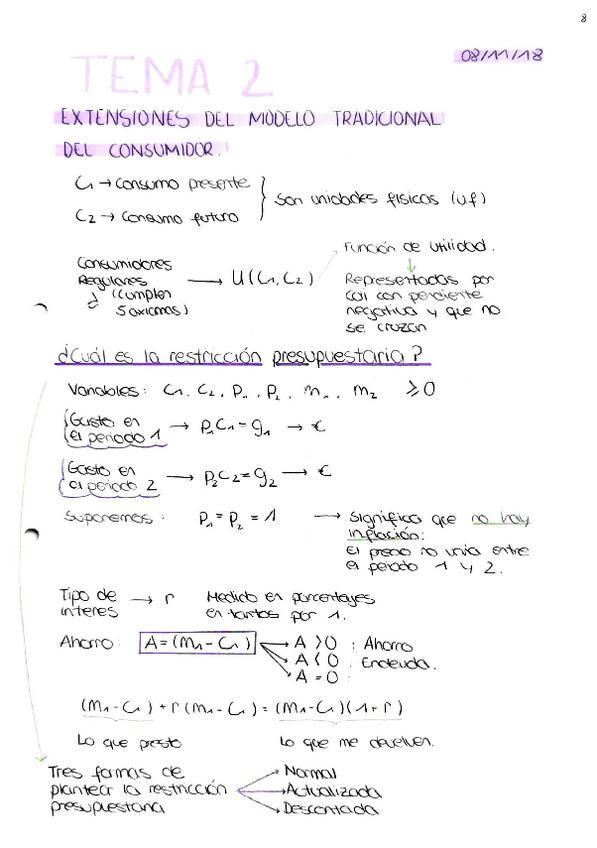 8
08/11/18
TEMA 2
EXTENSIONES DEL MODELO TRADICIONAL
DEL CONSUMIDOR.
C1 → Consumo presente
C2 → Consumo futuro
Son unidades físicas (u.f)
Función de utilidad.
Consumidores
Regulares
(Cumplen
5 axiomas)
→ U(C1, C2)
Representadas por
CCII con pendiente
negativa y que no
se cruzan
¿Cuál es la restricción presupuestaria?
Variables: C1, C2, P1, P2, m1, m2 ≥0
Gasto en
el periodo 1 → P1C1 = g1 → €
Gasto en
el periodo 2 → P2C2 = g2 → €
Suponemos: P1 = P2 = 1 → Significa que no hay
inflación:
El precio no varía entre
el periodo 1 y 2.
Tipo de
interes → r Medido en porcentajes
en tantos por 1.
Ahorro: A = (m1 - C1) → A > 0 : Ahorro
A < 0 : Endeuda.
A = 0 :
(m1 - C1) + r (m1 - C1) = (m1 - C1)(1 + r)
Lo que presto
Lo que me devuelven.
Tres formas de
plantear la restricción
presupuestaria
Normal
Actualizada
Descontada